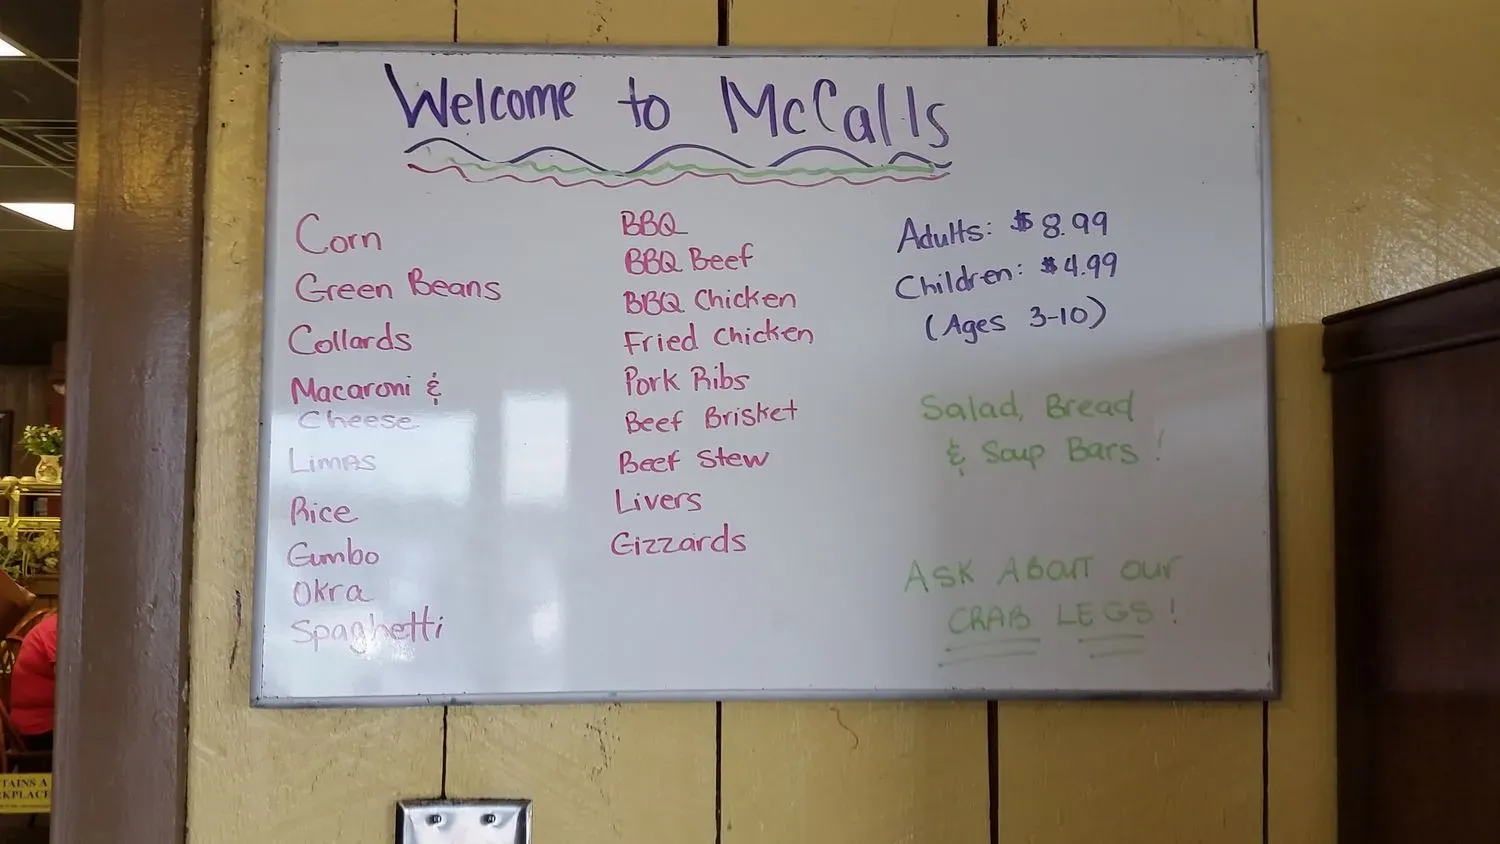 Welcome to McCalls
Corn
Green Beans
Collards
Macaroni &
Cheese
Limas
Rice
Gumbo
Okra
Spaghetti
BBQ
BBQ Beef
BBQ Chicken
Fried Chicken
Pork Ribs
Beef Brisket
Beef Stew
Livers
Gizzards
Adults: $8.99
Children: $4.99
(Ages 3-10)
Salad, Bread
& Soup Bars!
ASK ABOUT OUR
CRAB LEGS!
TAINS A
KPLACE